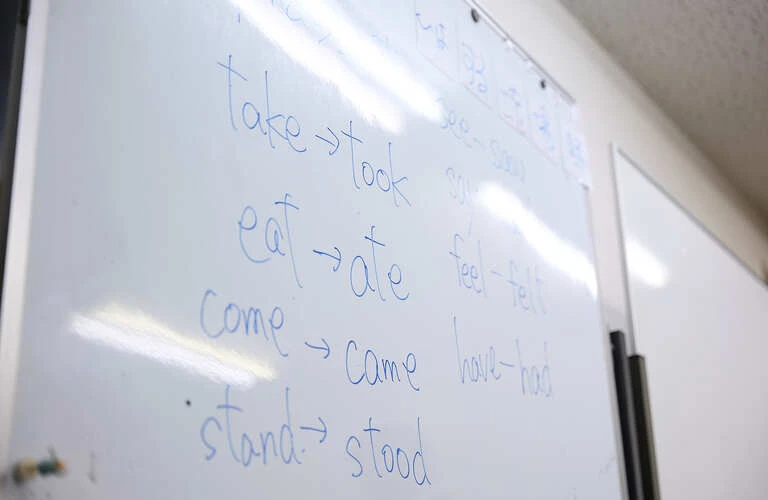 take → took
eat → ate
come → came
stand → stood
see - saw
say
feel - felt
have - had